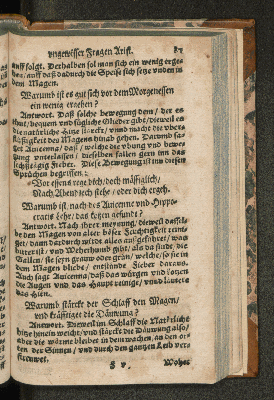 ungewisser Fragen Arist.
auff folgt. Derhalben sol man sich ein wenig erge-
hen/ auff daß dadurch die Speise sich setze unden in
dem Magen.
Warumb ist es gut sich vor dem Morgenessen
ein wenig ergehen?
Antwort. Daß solche bewegung dem/ der es
thut/ bequem und fügliche Glieder gibt/ dieweil es
die natürliche Hitze stärckt/ unnd macht die ubers
des Magens hinab gehen. Darumb sa-
get Avicenna/ daß/ welche die ubung und bewe-
gung unterlassen/ dieselben fallen gern inn das
Fieber. Diese Bewegung ist inn diesen
Sprüchen begriffen:
Vor essens rege dich/ doch mässiglich/
Nach Abend iech stehe / oder dich ergeh.
Warumb ist, nach des Avicenne und Hippo-
cratis Lehr, das kotzen gesundt?
Antwort. Nach ihrer meynung/ dieweil dassel-
be den Magen von aller böser Feuchtigkeit reini-
get/ dann dardurch wirdt alles außgeführet/ was
bitter ist und Weherhumb gibt/ als da sind/ die
Gallen/ sie seyn grauw oder grün/ welche/ so sie in
dem Magen bliebe/ entstünde Fieber daraus.
Auch sagt Avicenna/ daß das würgen und kotzen
die Augen und das Haupt reinige/ und läutere
das Hirn.
Warumb stärckt der Schlaff den Magen/
und kräfftiget die Däuwung?
Antwort. Dieweil im Schlaff die Natürliche
hitze hinein weicht/ und stärckt die Däuwung also/
aber die wärme bleibet in dem wachen/ an den or-
ten der Sinnen/ und durch den gantzen Leib ver-
streuwet.
Woher